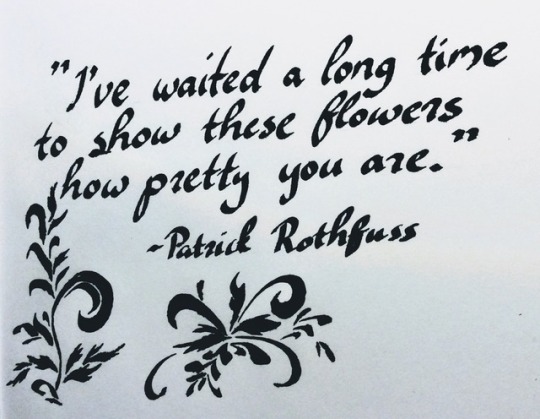 "I've waited a long time
to show these flowers
how pretty you are."
~Patrick Rothfuss